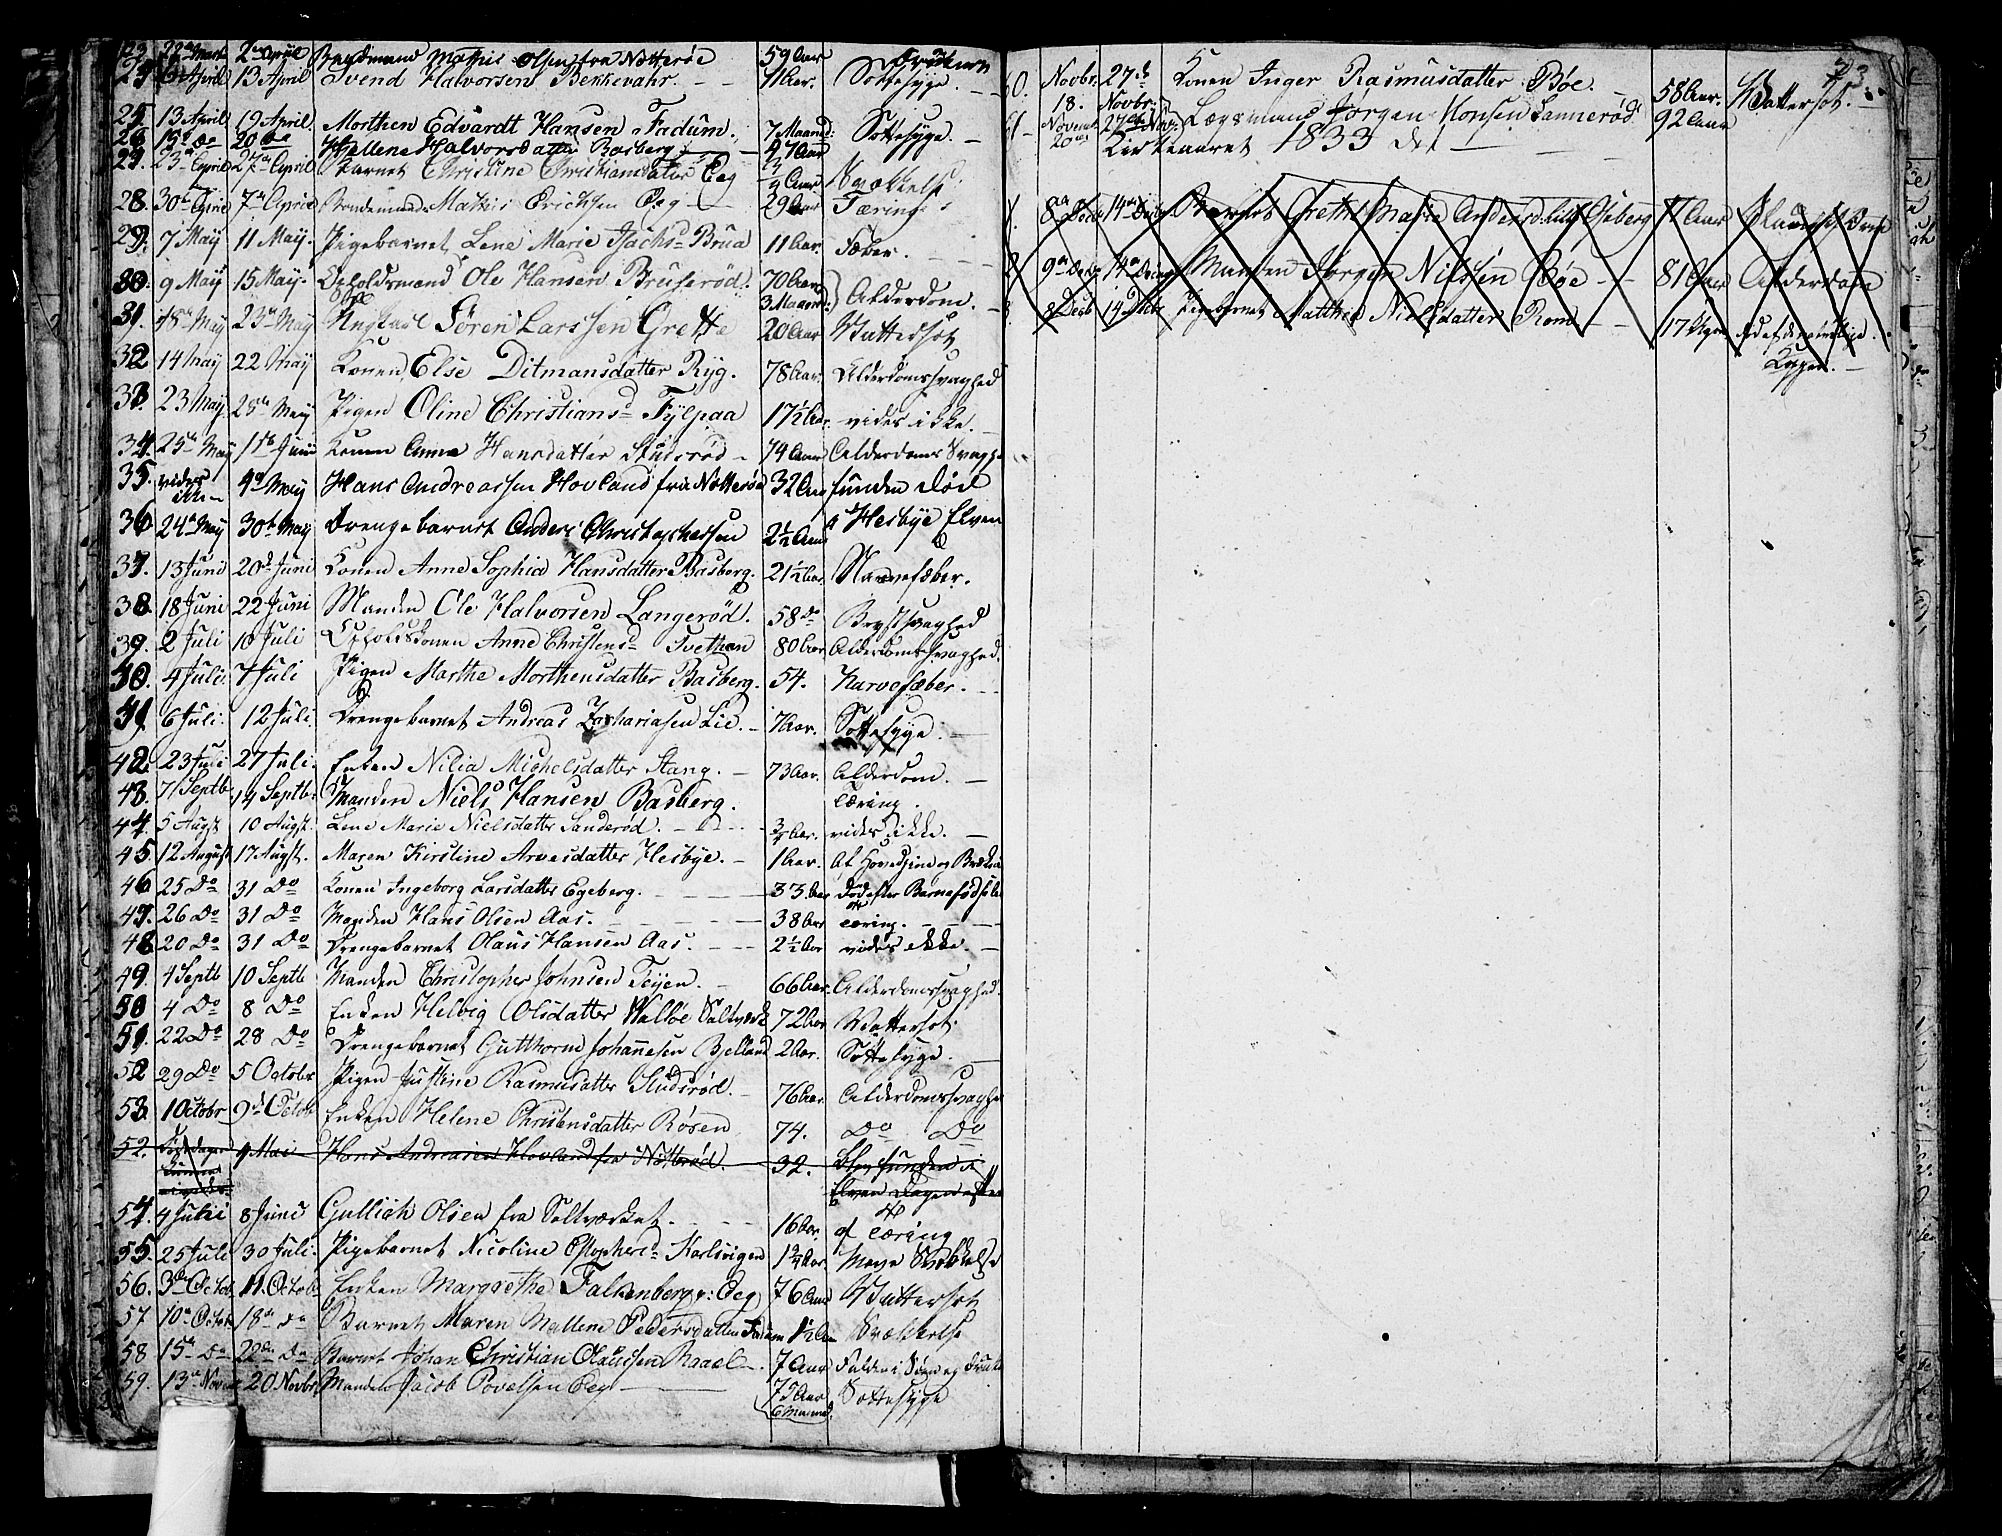 23 22de Mart 2den April Bondemand Mathis Olsen fra Nøtterøe 59 Aar
24 6 April 13 April Svend Halvorsen Bekkevahr. 11 Aar. Sottesyge.
25 13 April 19 April. Morthen Edvardt Hansen Fadum. 7 Maaned: Sottesyge.
26 15de Do 20de Do Hellene Halvorsdatter Basberg 47 Aar
27. 23de April 27de April Barnet Christine Christiansdatter Eeg 3/4 Aar. Svækkelse
28 30te April 7de April Bondemand Mathis Erichsen Eeg 29 Aar Tæring
29. 7 May 11 May. Pigebarnet, Lene Marie Isachsd Brua 11 Aar. Feber.
30. 9 May 15 May. Opholdsmand Ole Hansen Bruserød. 70 Aar 3 Maaned Alderdom.
31. 18de May 23de May Ungkarl Sören Larssen Grette 20 Aar Vattersot
32 14 May 22 May Konen, Else Ditmansdatter Ryg. 78 Aar. Alderdomssvaghed
33. 23 May 28de May Pigen Oline Christiansd Fylpaa 17 1/2 Aar. vides ikke.
34. 25de May 1ste Juni Konen Anne Hansdatter Studsrød 74 Aar Alderdoms Svaghe
35. vides ikke 4de May Hans Andreassen Hovland fra Nøtterøe 32 Aar funden død
36 24de May 30te May Drengebarnet Anders Christophersen 2 1/2 Aar i Hesbye Elven
37. 13 Juni 20de Juni Konen Anne Sophia Hansdatter Basberg. 21 1/2 Aar. Nervefæber.
38. 18 Juni 22 Juni Manden Ole Halvorsen Langerød. 58 Do Brystsvaghed
39. 2 Juli 10 Juli Opholdskonen Anne Christensd Tvethen 80 Aar Alderdomssvaghed.
40. 4 Juli 7 Juli Pigen Marthe Morthensdatter Basberg. 54. Narvefæber.
41. 6 Juli. 12 Juli. Drengebarnet Andreas Zachariasen Lie. 7 Aar. Sottesyge.
42. 23 Juli 27 Juli. Enken Nilia Michelsdatter Stang. 73 Aar. Alderdom.
43. 7 Septb 14 Septb. Manden Niels Hansen Basberg. Tæring.
44. 5 Augst 10 Augst. Lene Marie Nielsdatter Sanderød. 3/4 Aar. vides ikke.
45. 12 August 17 Augst. Maren Kirstine Arvesdatter Hesbye. 1 Aar. Af Hovedpine og
46 25 Do 31 Do Konen Ingeborg Larsdatter Egeberg. 33 Aar Død efter Barnefødsele
47. 26 Do 31 Do Manden Hans Olsen Aas. 38 Aar Tæring.
48 20 Do 31 Do Drengebarnet Olaus Hansen Aas. 2 1/2 Aar vides ikke.
49. 4 Septb 10 Septb Manden Christopher Johnsen Teien. 66 Aar. Alderdomssvaghed.
50 4 Do 8 Do Enken Helvig Olsdatter Walløe Saltværk 72 Aar Wattersot.
51. 22 Do 28 Do Drengebarnet Gutthorm Johannesen Bjelland 2 Aar. Sottesyge.
52 29 Do 5 Octobr Pigen Justine Rasmusdatter Studsrød. 76 Aar. Alderdomssvaghe
53. 1 Octobr 9de Octob Enken Helene Christensdatter Røsen 74. Do Do
52. 4 Mai Hans Andreasen Hovland fra Nøtterød. 32. Blev funden i
Elven
54. 4 Julii 8 Juni Gullich Olsen fra Saltværket. 16 Aar. af Tæring
55. 25 Juli 30 Juli. Pigebarnet Nicoline Christophersd Karlsvigen Aar Svækkelse
56. 3de Octob 11. Octob Enken Margrethe Falkenberg Eeg 76 Aar Vattersot
57 10de Octob 18de Do Barnet Maren Mallene Pedersdatter Fadum 1 1/2 Aar Svækkelse
58 15de Do 22de Do Barnet Johan Christian Olaussen Raael 7 Aar Falden i Søen og
59. 13de Novbr 20 Novbr. Manden Jacob Povelsen Eeg 75 Aar 6 Maaned. Sottesyge
60. Novbr. 18. 27de Novbr. Konen Inger Rasmusdatter Bøe. 58 Aar. Wattersot.
61 Novemb 20de 27de Nov: Lægsmand Jørgen Monsen Lannerød 92 Aar
Kirkeaaret 1833 det
1. 8de Decb 14de Decb. Barnet Grethe Maria Andersd: lille Oseberg Aar
2 9de Decb 14de Decbr Manden Jørgen Nilssen Bøe 81 Aar Alderdom
3. 8 Decb 14 Decbr Pigebarnet Matthea Nielsdatter Rom 17 Uger